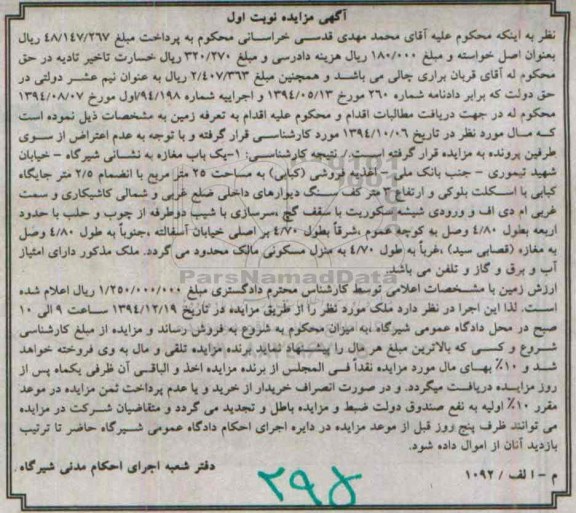 آگهی مزایده نوبت اول
نظر به اینکه محکوم علیه آقای محمد مهدی قدسی خراسانی محکوم به پرداخت مبلغ ۴۸/۱۴۷/۲۶۷ ریال
بعنوان اصل خواسته و مبلغ ۱۸۰/۰۰۰ ریال هزینه دادرسی و مبلغ ۳۲۰/۲۷۰ ریال خسارت تاخیر تادیه در حق
محکوم له آقای قربان براری چالی می باشد و همچنین مبلغ ۲/۴۰۷/۳۶۳ ریال به عنوان نیم عشر دولتی در
حق دولت که برابر دادنامه شماره ۲۶۰ مورخ ۱۳۹۴/۰۵/۱۳ و اجراییه شماره ۹۴/۱۹۸/اول مورخ ۱۳۹۴/۰۸/۰۷
محکوم له در جهت دریافت مطالبات اقدام و محکوم علیه اقدام به تعرفه زمین به مشخصات ذیل نموده است
که مال مورد نظر در تاریخ ۱۳۹۴/۱۰/۰۶ مورد کارشناسی قرار گرفته و با توجه به عدم اعتراض از سوی
طرفین پرونده به مزایده قرار گرفته است./ نتیجه کارشناسی: ۱-یک باب مغازه به نشانی شیرگاه - خیابان
شهید تیموری - جنب بانک ملی - اغذیه فروشی (کبابی) به مساحت ۲۵ متر مربع با انضمام ۲/۵ متر جایگاه
کبابی با اسکلت بلوکی و ارتفاع ۳ متر کف سنگ دیوارهای داخلی ضلع غربی و شمالی کاشیکاری و سمت
غربی ام دی اف و ورودی شیشه سکوریت با سقف گچ ،سرسازی با شیب دوطرفه از چوب و حلب با حدود
اربعه بطول ۴/۸۰ وصل به کوچه عموم ،شرقاً بطول ۴/۷۰ بر اصلی خیابان آسفالته ،جنوباً به طول ۴/۸۰ وصل
به مغازه (قصابی سید) ،غرباً به طول ۴/۷۰ به منزل مسکونی مالک محدود می گردد. ملک مذکور دارای امتیاز
آب و برق و گاز و تلفن می باشد.
ParsNamadData
ارزش زمین با مشخصات اعلامی توسط کارشناس محترم دادگستری مبلغ ۱/۲۵۰/۰۰۰/۰۰۰ ریال اعلام شده
است. لذا این اجرا در نظر دارد ملک مورد نظر را از طریق مزایده در تاریخ ۱۳۹۴/۱۲/۱۹ ساعت ۹ الی ۱۰
صبح در محل دادگاه عمومی شیرگاه ،به میزان محکوم به شروع به فروش رساند و مزایده از مبلغ کارشناسی
شروع و کسی که بالاترین مبلغ هر مال را پیشنهاد نماید برنده مزایده تلقی و مال به وی فروخته خواهد
شد و ۱۰٪ بهای مال مورد مزایده نقداً فی المجلس از برنده مزایده اخذ و الباقی آن ظرفی یکماه پس از
روز مزایده دریافت میگردد. و در صورت انصراف خریدار از خرید و یا عدم پرداخت ثمن مزایده در موعد
مقرر ۱۰٪ اولیه به نفع صندوق دولت ضبط و مزایده باطل و تجدید می گردد و متقاضیان شرکت در مزایده
می توانند ظرف پنج روز قبل از موعد مزایده در دایره اجرای احکام دادگاه عمومی شیرگاه حاضر تا ترتیب
بازدید آنان از اموال داده شود.
دفتر شعبه اجرای احکام مدنی شیرگاه
م - ا لف / ۱۰۹۲